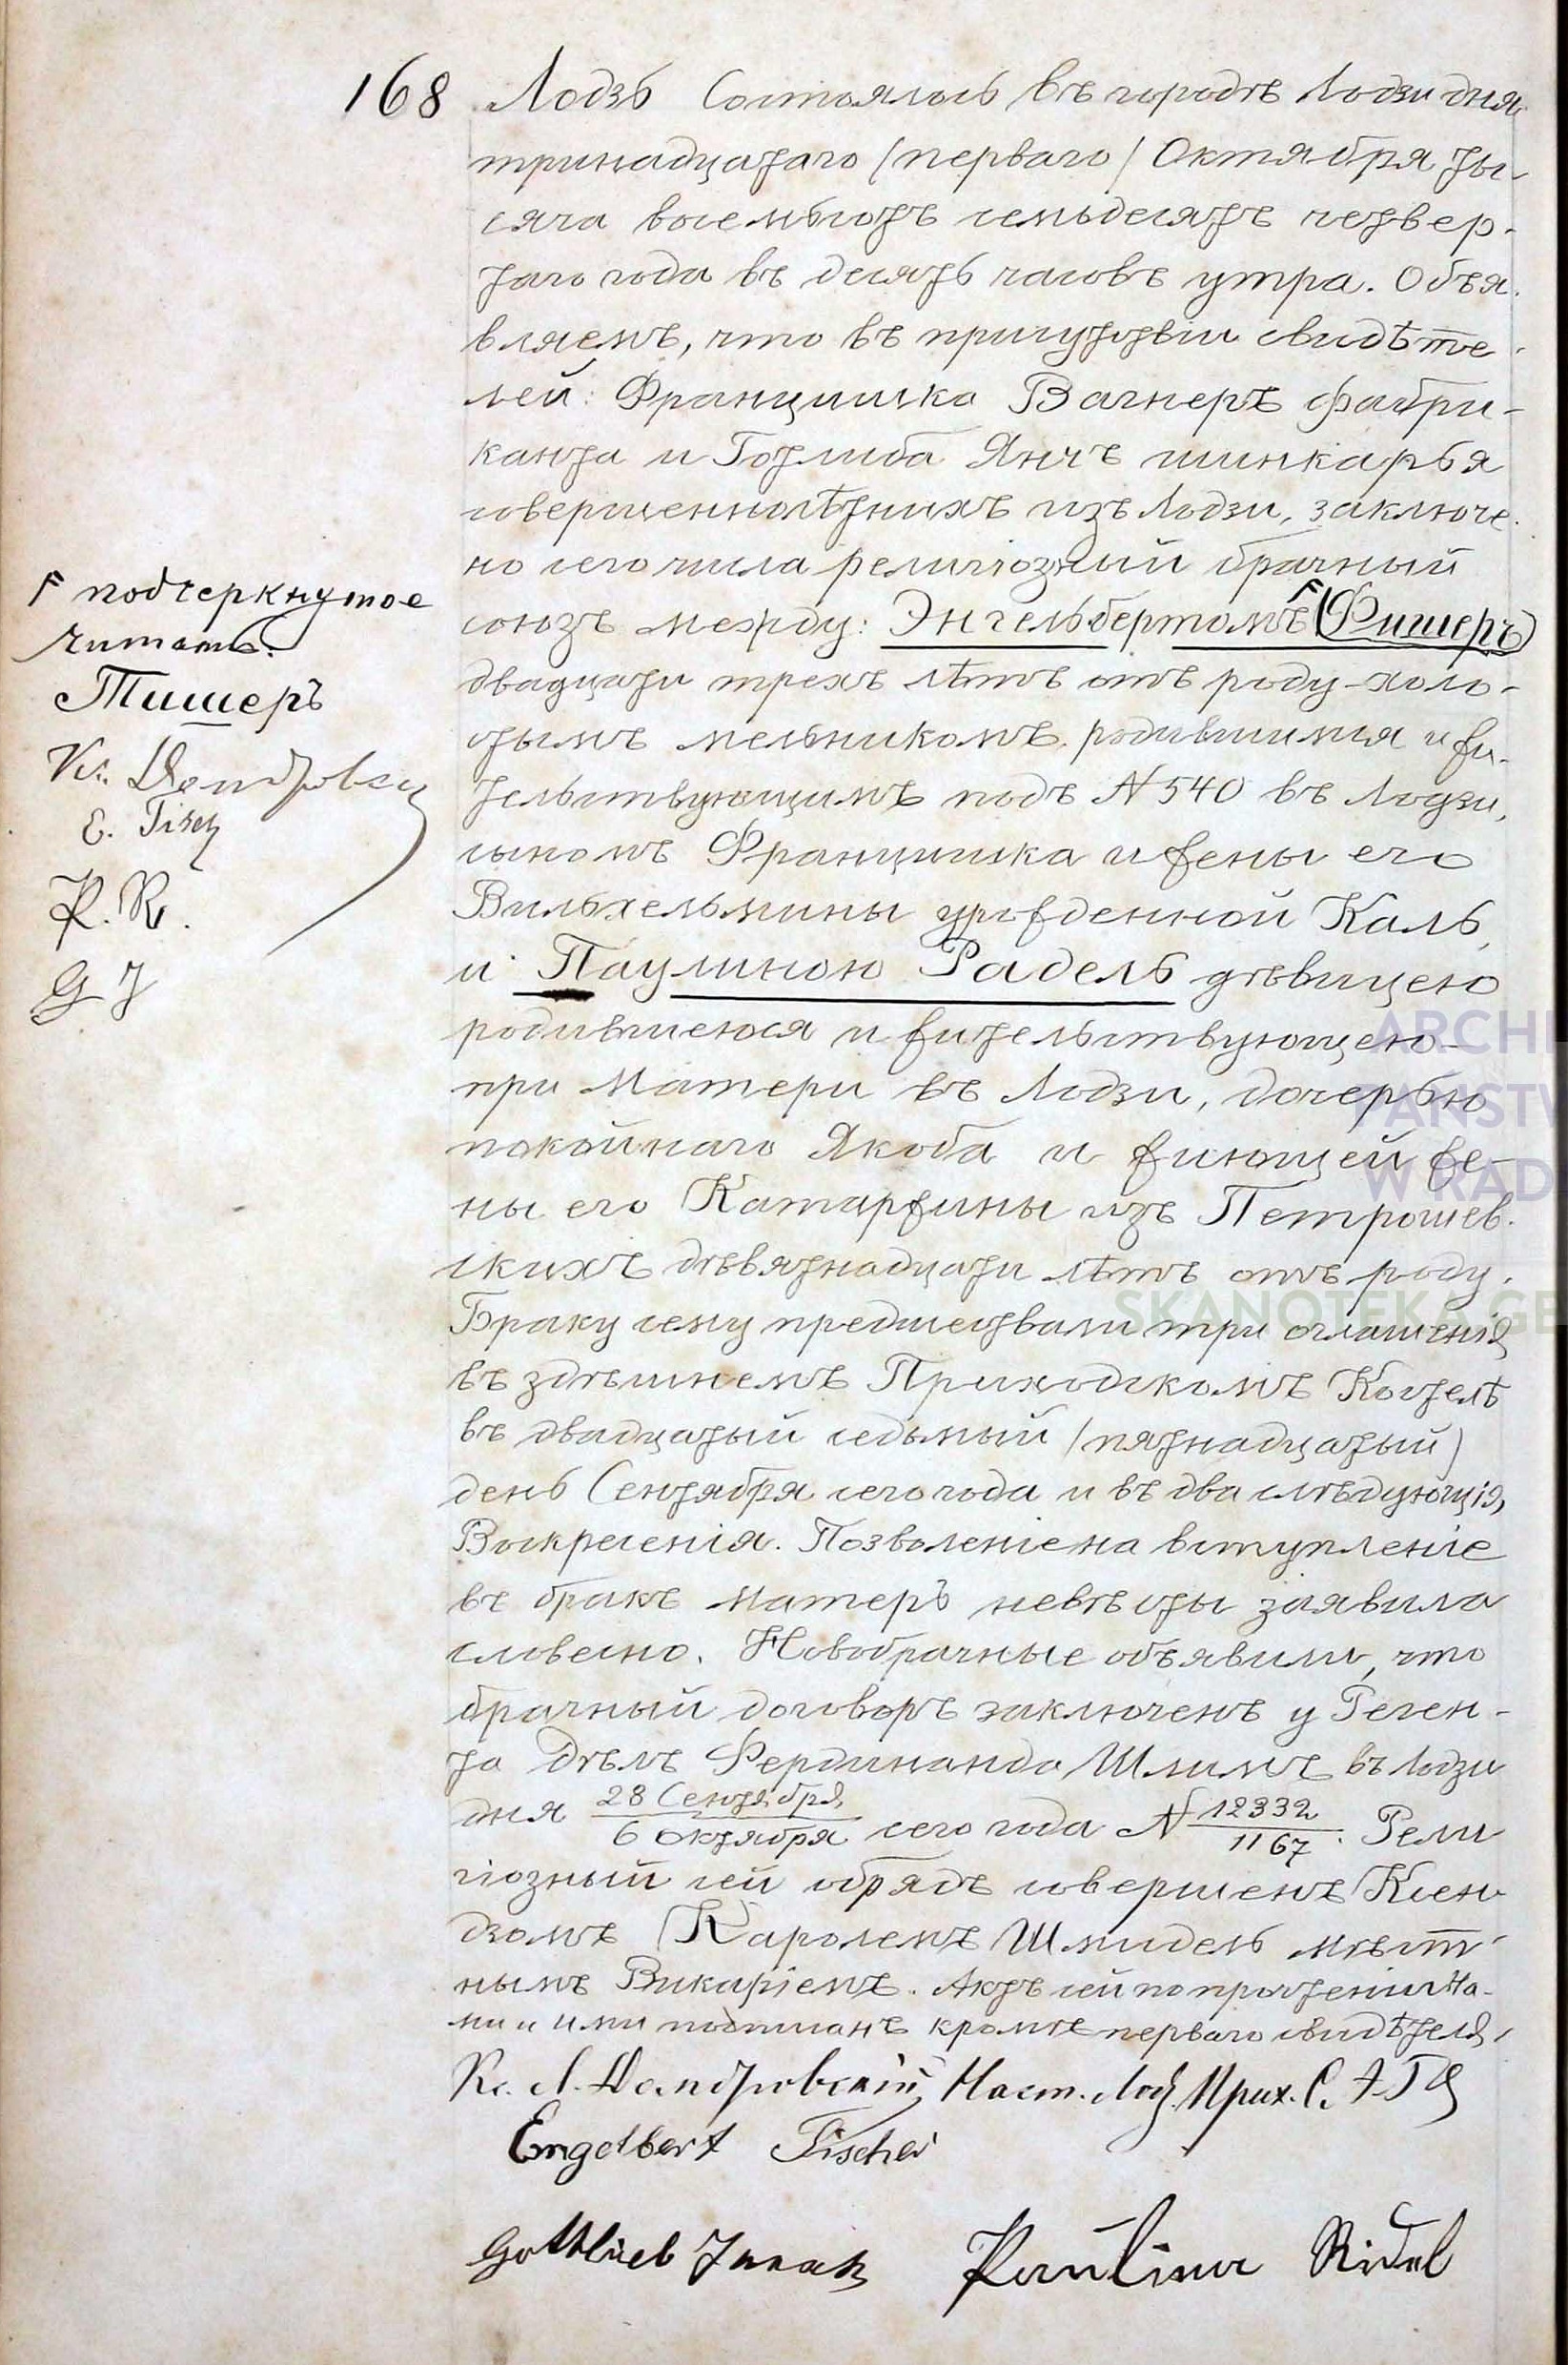 168 Лодзь Состоялось въ городѣ Лодзи дня
тринадцатаго (перваго) Октября ты-
сяча восемьсотъ семьдесятъ четвер-
таго года въ десять часовъ утра. Объя-
вляемъ, что въ присутствіи свидѣте-
лей: Францишка Вагнеръ фабри-
канта и Готлиба Янчъ шинкарья
совершеннолѣтнихъ изъ Лодзи, заключе-
но сего числа религіозный брачный
союзъ между: Энгельбертомъ (Фишеръ)
двадцати трехъ лѣтъ отъ роду холо-
стымъ мельникомъ, родившимся и жи-
тельствующимъ подъ N 540 въ Лодзи,
сыномъ Францишка и жены его
Вильхельмины урожденной Каль,
и Паулиною Радель дѣвицею
родившеюся и жительствующею
при Матери въ Лодзи, дочерью
покойнаго Якоба и живущей же-
ны его Катаржины изъ Петрошев-
скихъ дѣвятнадцати лѣтъ отъ роду.
Браку сему предшествовали три оглашенія
въ здѣшнемъ Приходскомъ Костелѣ
въ двадцатый седьмый (пятнадцатый)
день Сентября сего года и въ два слѣдующія
Воскресенія. Позволеніе на вступленіе
въ бракъ матерь невѣсты заявила
словесно. Новобрачные объявили, что
брачный договоръ заключенъ у Реген-
та дѣлъ Фердинанда Шлимъ въ Лодзи
дня 28 Сентября / 6 Октября сего года N 12332 / 1167. Рели-
гіозный сей обрядъ совершенъ Ксен-
дзомъ Каролемъ Шмидель мѣст-
нымъ Викаріемъ. Актъ сей по прочтеніи На-
ми и ими подписанъ кромѣ перваго свидѣтеля.
Кс. Л. Домбровскій Наст. Лод. Прих. С. А. Г.
Engelbert Fischer
Gottlieb Janak Paulina Ridel
подчеркнутое
читать:
Тишеръ
Кс. Домбровскій
E. Fisch
P. R.
G J
ARCHI
PAŃSTW
W RAD
SKANOTEKA.GE